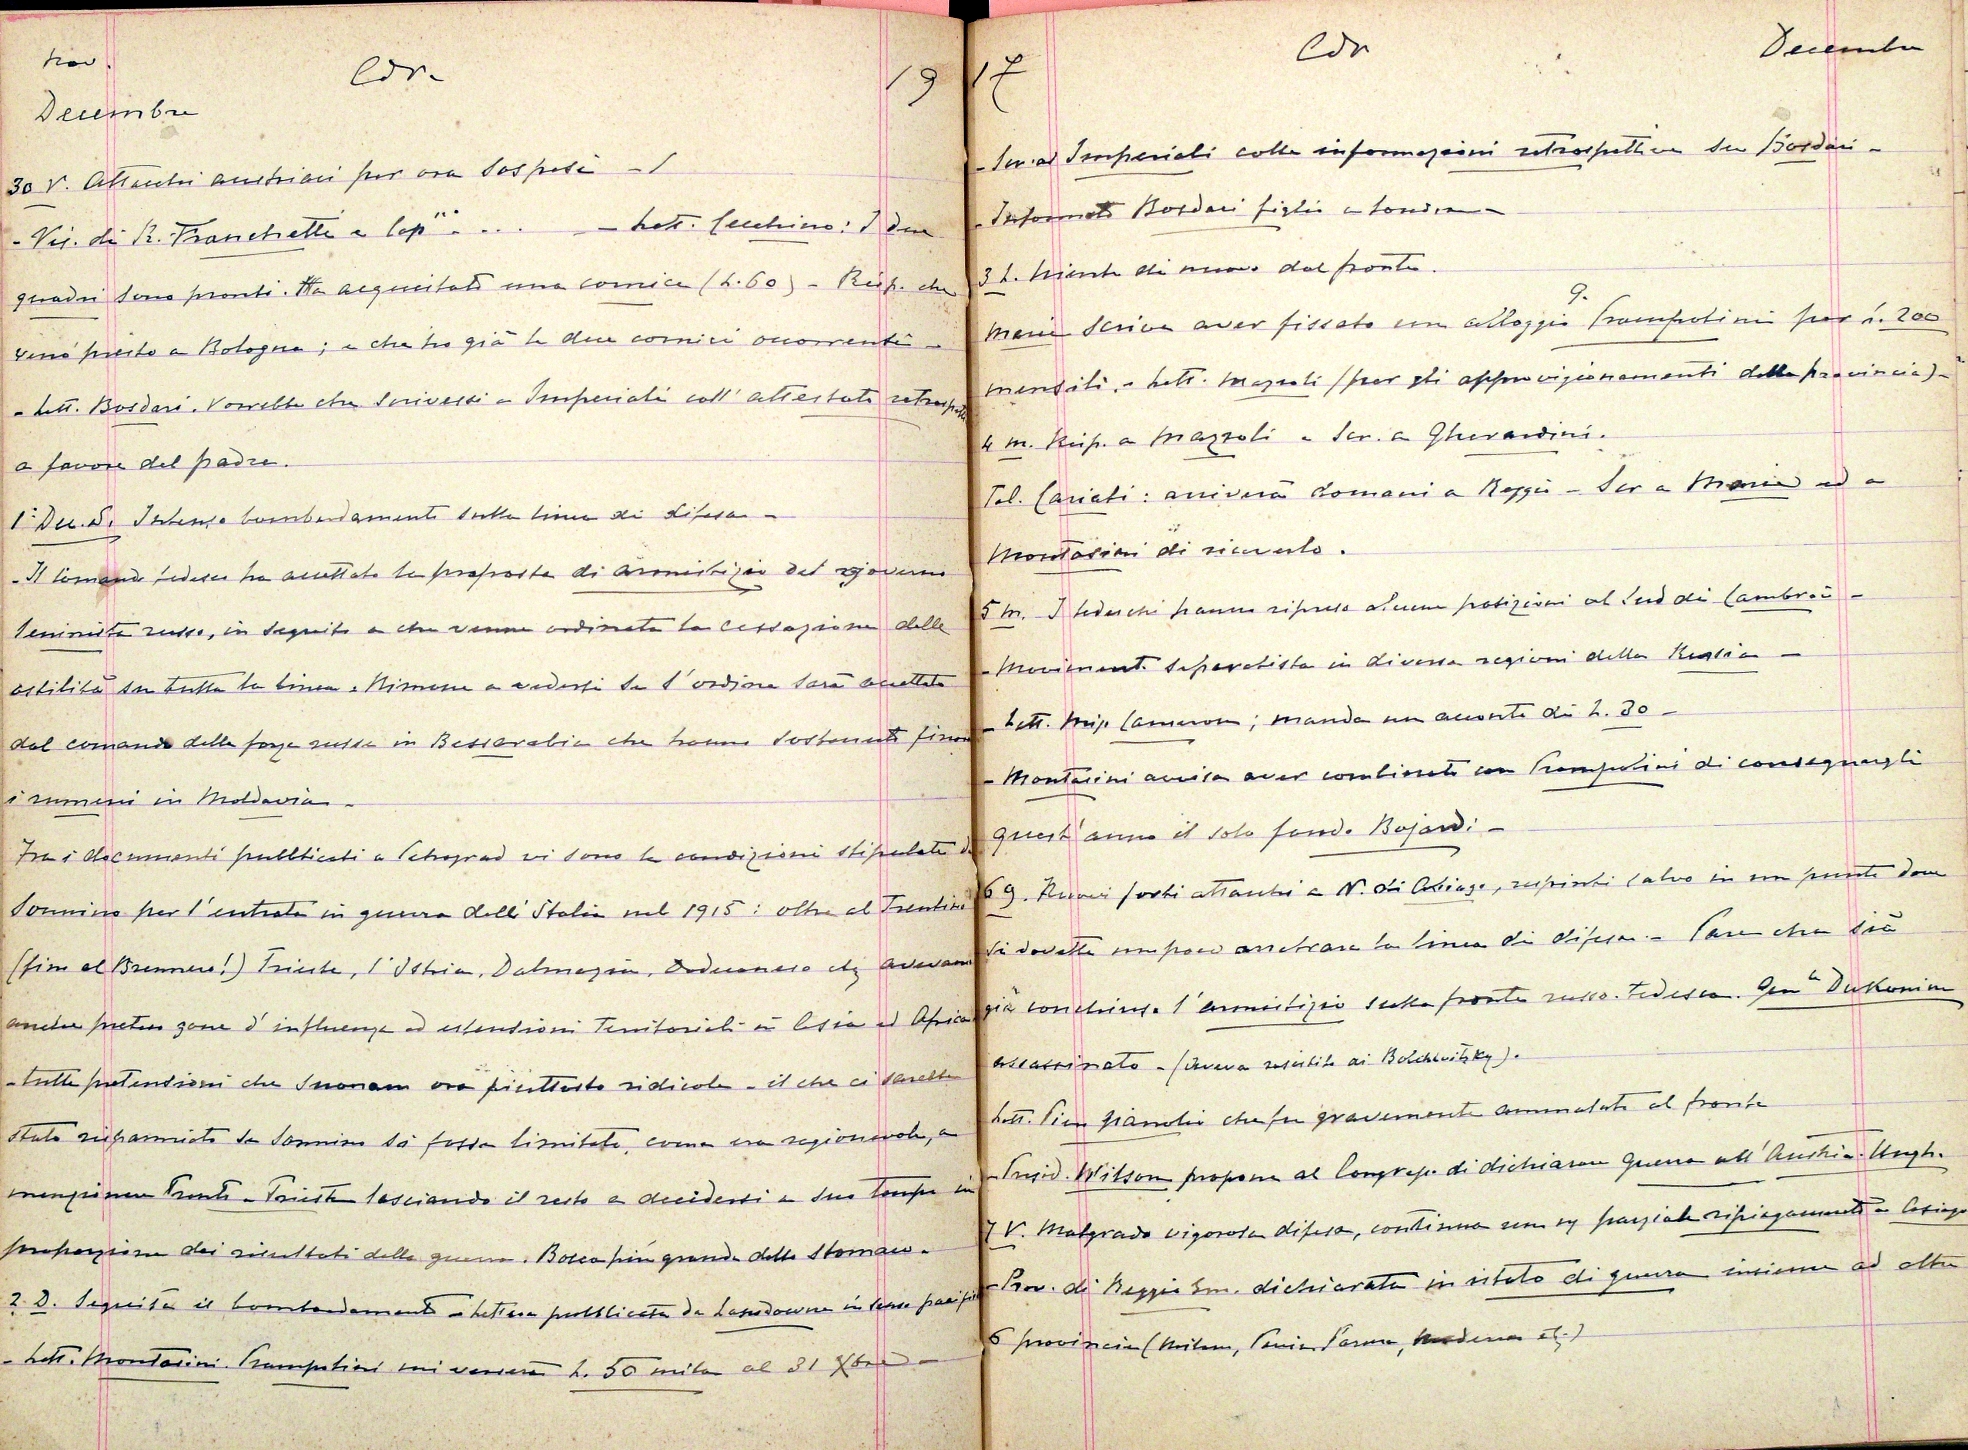 Nov.
Cdr.
19
Decembre
30 V. Attacchi austriaci per ora sospesi -
- Vis. di R. Franchetti e - Lett. Cecchino: I due
quadri sono pronti. Ha acquistato una cornice (L. 60) - Risp. che
verrò presto a Bologna; e che ho già le due cornici occorrenti -
- Lett. Bosdari. Vorrebbe che scrivessi a Imperiali coll'attestato
a favore del padre.
1° Dec. S. Intenso bombardamento sulla linea di difesa -
- Il comando tedesco ha accettato la proposta di armistizio del governo
leninista russo, in seguito a che venne ordinata la cessazione delle
ostilità su tutta la linea. Rimane a vedersi se l'ordine sarà accettato
dal comando delle forze russe in Bessarabia che hanno sostenuto finora
i rumeni in Moldavia -
Tra i documenti pubblicati a Petrograd vi sono le condizioni stipulate da
Sonnino per l'entrata in guerra dell'Italia nel 1915: oltre al Trentino
(fino al Brennero!) Trieste, l'Istria, Dalmazia, avevamo
anche zone d'influenza ed estensioni territoriali in Asia ed Africa
- tutte pretensioni che suonano ora piuttosto ridicole - il che ci sarebbe
stato risparmiato se Sonnino si fosse limitato, come era ragionevole, a
menzionare Trento e Trieste lasciando il resto a decidersi a suo tempo in
proporzione dei risultati della guerra. Bocca più grande dello stomaco.
2. D. Seguita il bombardamento - Lettera pubblicata da Lansdowne in senso
- Lett. Montasini. Prampolini mi verserà L. 50 mila al 31 Xbre -
17
Cdr
Decembre
- Scr. ad Imperiali colle informazioni retrospettive su Bosdari -
- Informato Bosdari figlio a Londra -
3 L. Niente di nuovo dal fronte.
Maria scrive aver fissato un alloggio G. Prampolini per L. 200
mensili. - Lett. Mazzoli (per gli approvigionamenti della provincia) -
4 m. Risp. a Mazzoli e Scr. a Gherardini.
Tel. Cariati: arriverà domani a Reggio - Scr a Maria ed a
Montasini di riceverlo.
5 M. I tedeschi hanno ripreso alcune posizioni al Sud di Cambrai -
- Movimento separatista in diverse regioni della Russia -
- Lett. Miss Cameron; manda un acconto di L. 30 -
- Montasini avvisa aver combinato con Prampolini di consegnargli
quest'anno il solo fondo Bojardi -
6 G. Nuovi forti attacchi a N. di Asiago, respinti salvo in un punto dove
si dovette un poco arretrare la linea di difesa. - Pare che sia
già conchiuso l'armistizio sulla fronte russo-tedesca. Gen.le Dukonine
assassinato - (aveva resistito ai Bolchevitzky).
Lett. Pier che fu gravemente ammalato al fronte
- Presid. Wilson propone al Congresso di dichiarare guerra all'Austria-Ungh.
7 V. Malgrado vigorosa difesa, continua un parziale ripiegamento a Asiago
- Prov. di Reggio Em. dichiarata in istato di guerra insieme ad altre
6 provincie (Milano, Pavia, Parma, Modena etc)